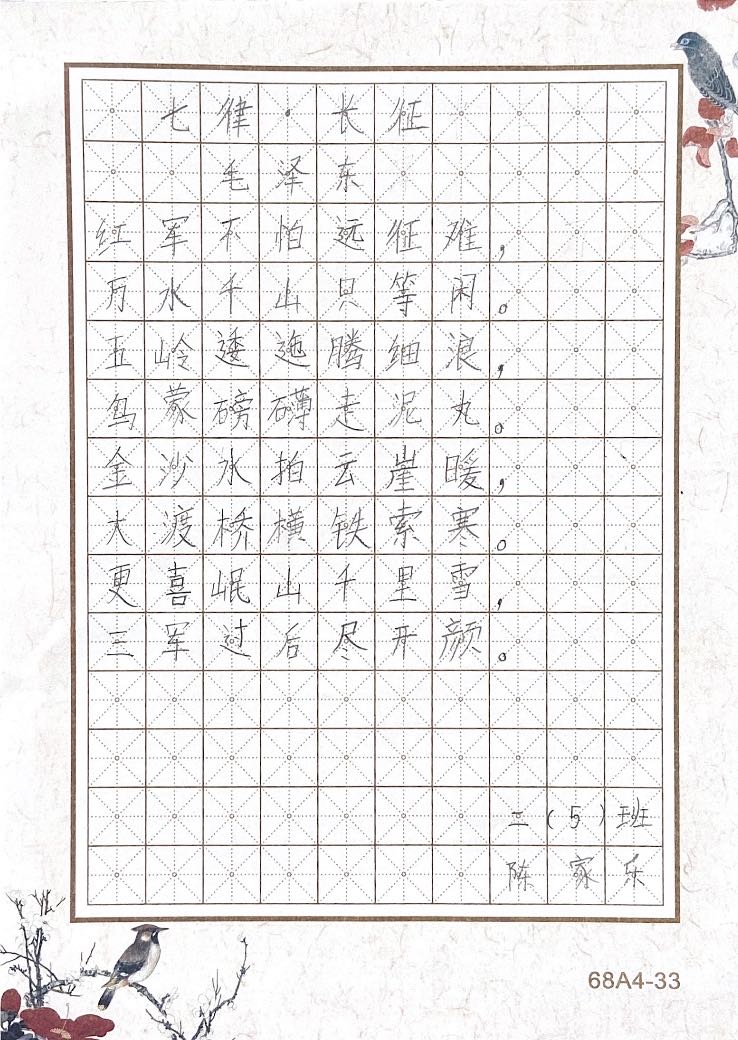 七律·长征
毛泽东
红军不怕远征难，
万水千山只等闲。
五岭逶迤腾细浪，
乌蒙磅礴走泥丸。
金沙水拍云崖暖，
大渡桥横铁索寒。
更喜岷山千里雪，
三军过后尽开颜。
二（5）班
陈家乐
68A4-33